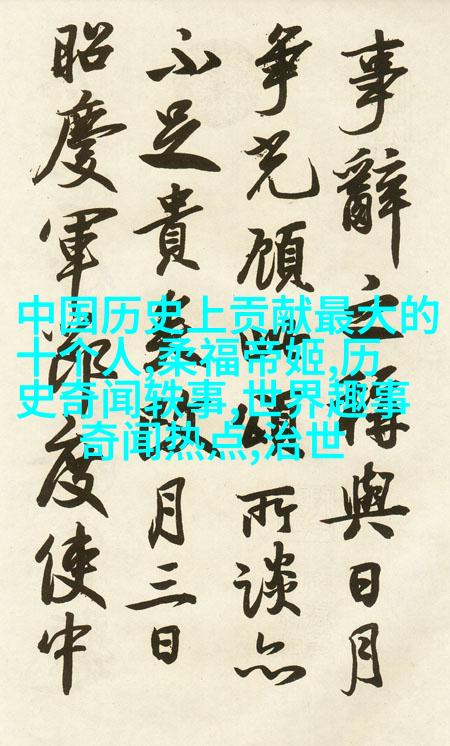 事辭之得與日月
爭光顧頌所談亦
不足貴月三日
昭慶軍節度使中
中国历史上贡献最大的
十个人,柔福帝姬,历
史奇闻轶事,世界趣事
奇闻热点,治世